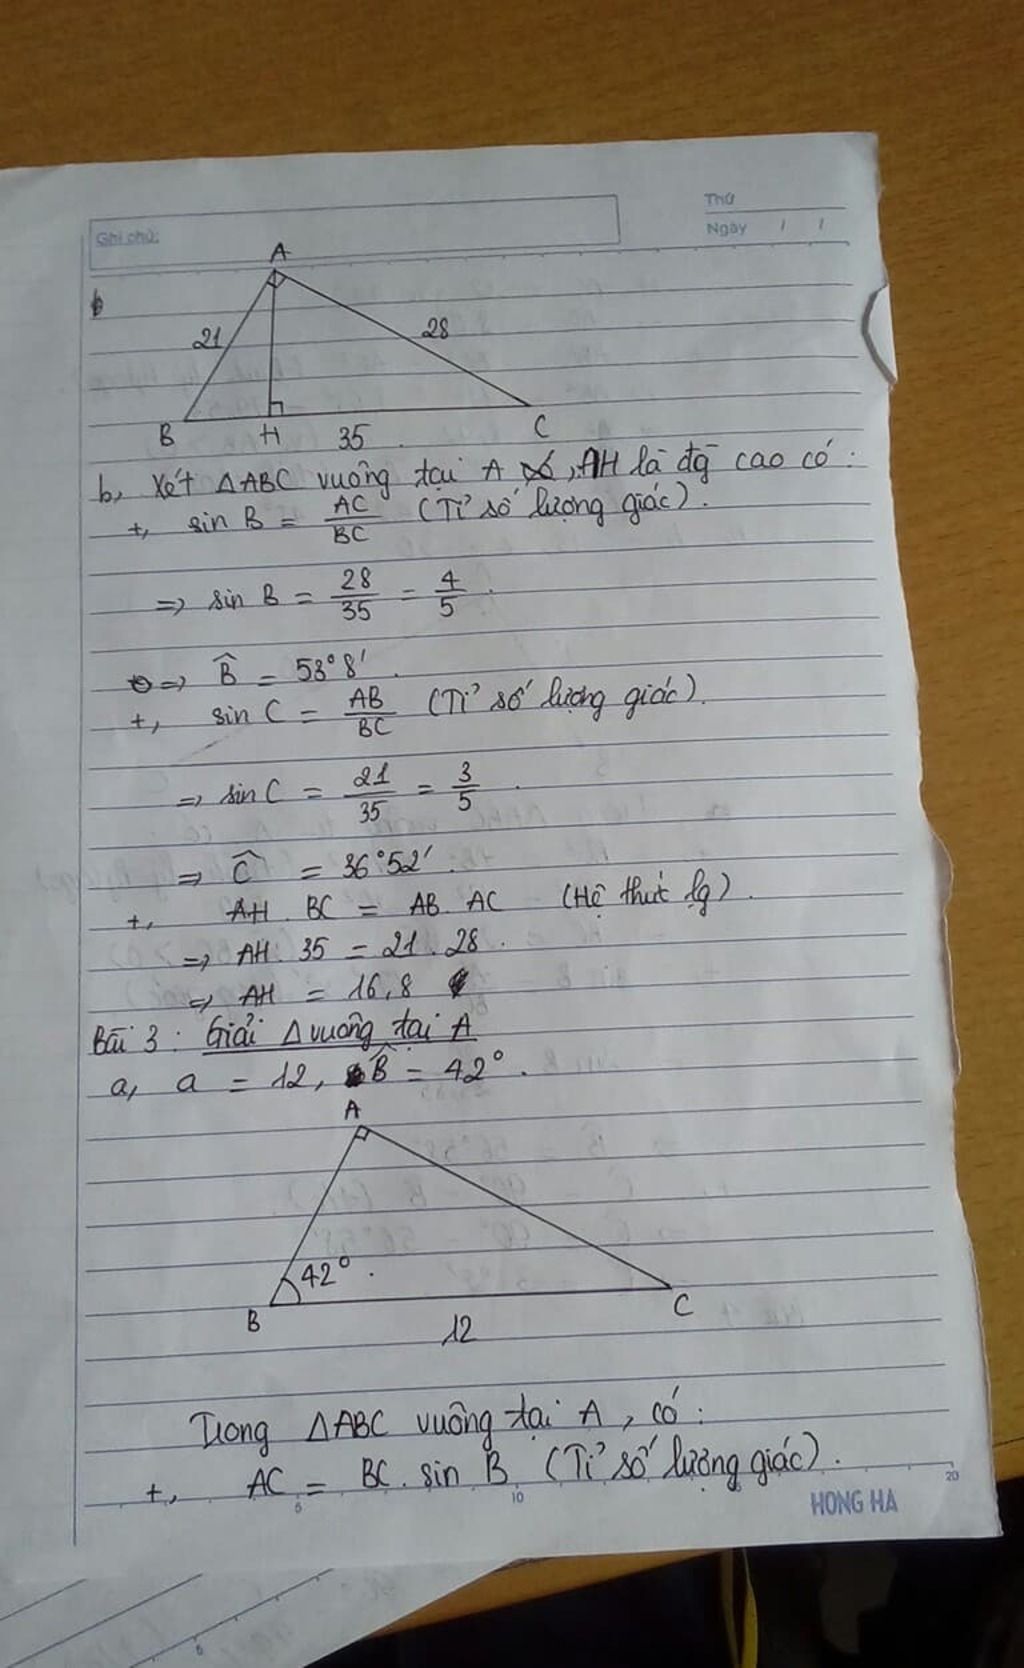 Thứ
Ghi chú:
Ngày / /
A
21
28
B
H
35
C
b, Xét △ABC vuông tại A, AH là đg cao có:
+, sin B = AC/BC (Tỉ số lượng giác).
=> sin B = 28/35 = 4/5.
=> B̂ = 53°8'.
+, sin C = AB/BC (Tỉ số lượng giác).
=> sin C = 21/35 = 3/5.
=> Ĉ = 36°52'.
+, AH. BC = AB. AC (Hệ thức lg).
=> AH. 35 = 21. 28.
=> AH = 16,8
Bài 3: Giải △ vuông tại A
a, a = 12, B̂ = 42°.
A
42°.
B
C
12
Trong △ABC vuông tại A, có:
+, AC = BC. sin B (Tỉ số lượng giác).
5 10 20
HONG HA